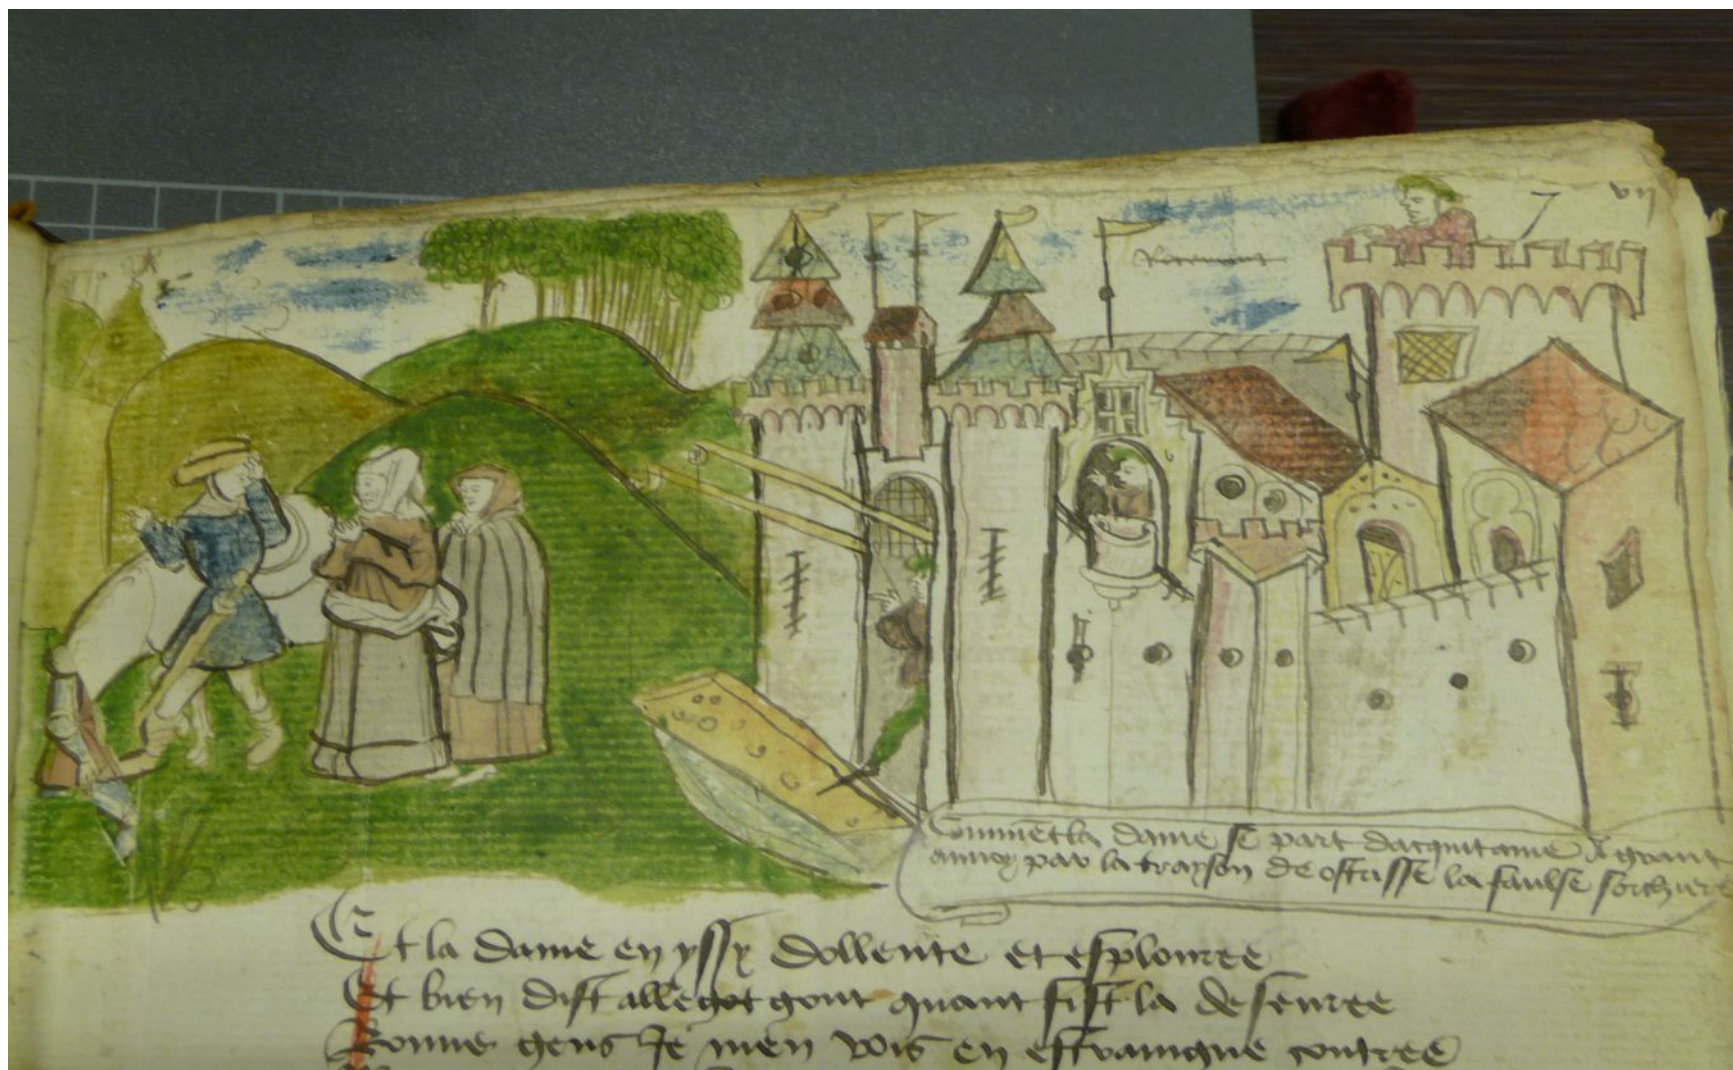 7 vij
Comment la dame se part dacquitaine A grant
annoy par la trayson de ostrisse la faulse sorchiere
Et la dame en yssy dollente et esplouree
Et bien dist allegot gont quant fist la desseuree
Bonne gens Je men vois en estraingne contree